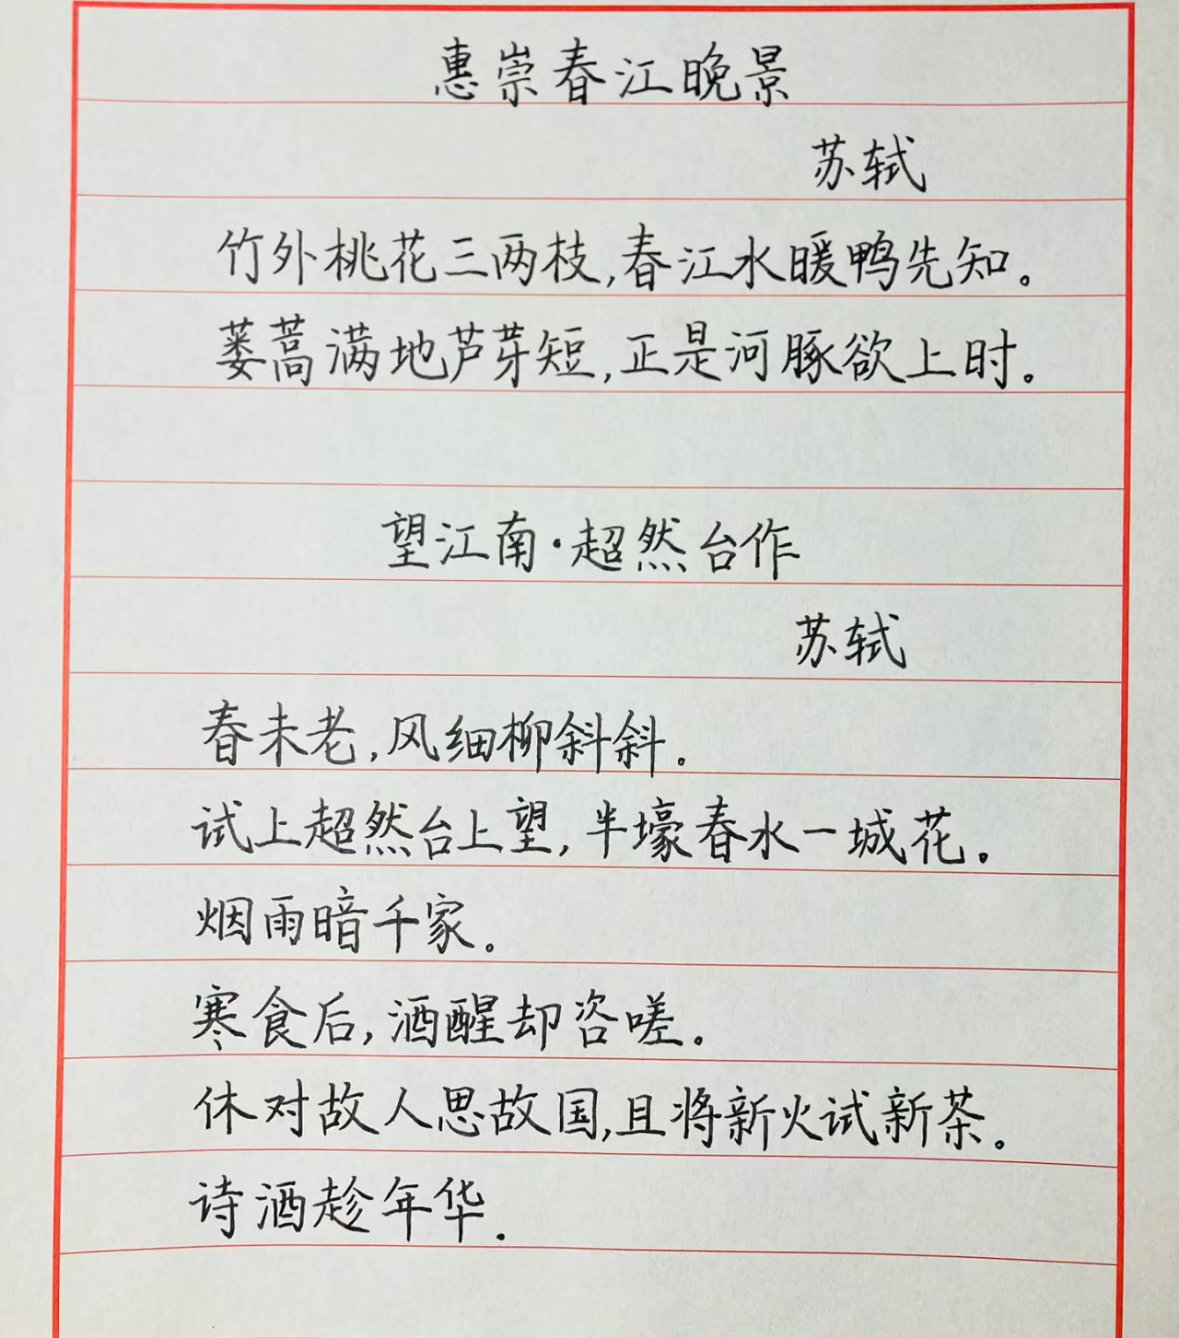 惠崇春江晚景
苏轼
竹外桃花三两枝,春江水暖鸭先知。
蒌蒿满地芦芽短,正是河豚欲上时。
望江南·超然台作
苏轼
春未老,风细柳斜斜。
试上超然台上望,半壕春水一城花。
烟雨暗千家。
寒食后,酒醒却咨嗟。
休对故人思故国,且将新火试新茶。
诗酒趁年华.